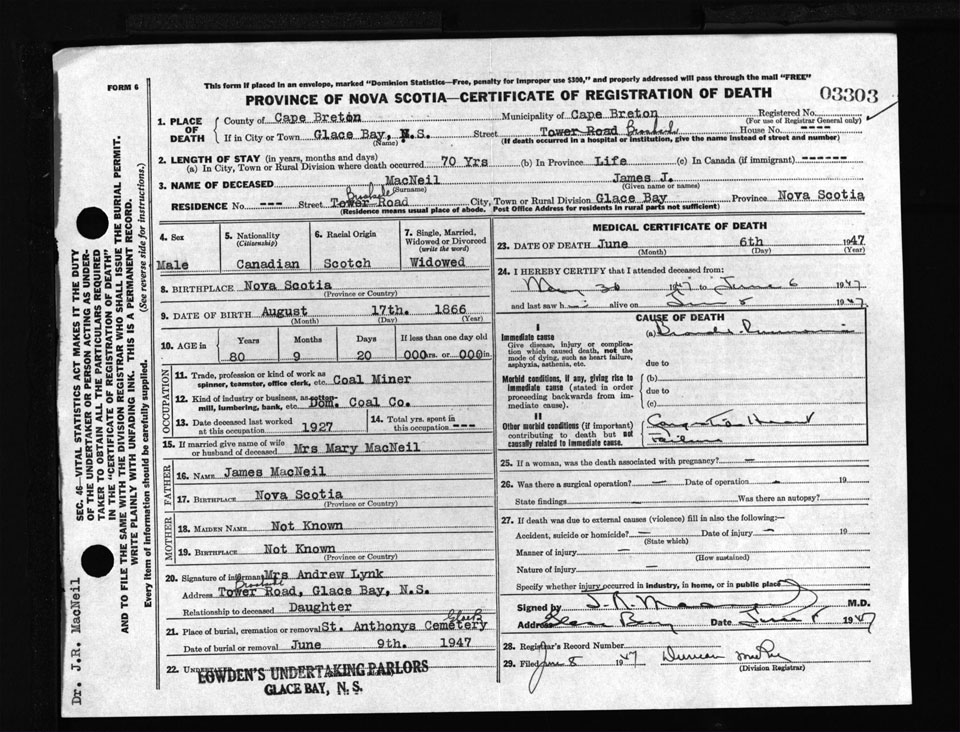 FORM 6
This form if placed in an envelope, marked "Dominion Statistics—Free, penalty for improper use $300," and properly addressed will pass through the mail "FREE"
PROVINCE OF NOVA SCOTIA—CERTIFICATE OF REGISTRATION OF DEATH
03303
1. PLACE OF DEATH
County of Cape Breton Municipality of Cape Breton Registered No.
(For use of Registrar General only)
If in City or Town Glace Bay, N.S. Street Tower Road Brookside House No. ----
(Name) (If death occurred in a hospital or institution, give the name instead of street and number)
2. LENGTH OF STAY (in years, months and days)
(a) In City, Town or Rural Division where death occurred 70 Yrs (b) In Province Life (c) In Canada (if immigrant) ------
3. NAME OF DECEASED MacNeil James J.
(Surname) (Given name or names)
Brookside
RESIDENCE No. --- Street Tower Road City, Town or Rural Division Glace Bay Province Nova Scotia
(Residence means usual place of abode. Post Office Address for residents in rural parts not sufficient)
4. Sex
Male
5. Nationality (Citizenship)
Canadian
6. Racial Origin
Scotch
7. Single, Married, Widowed or Divorced (write the word)
Widowed
8. BIRTHPLACE Nova Scotia
(Province or Country)
9. DATE OF BIRTH August 17th. 1866
(Month) (Day) (Year)
10. AGE in
Years Months Days If less than one day old
80 9 20 000hrs. or 000min.
OCCUPATION
11. Trade, profession or kind of work as spinner, teamster, office clerk, etc. Coal Miner
12. Kind of industry or business, as cotton-mill, lumbering, bank, etc. Dom. Coal Co.
13. Date deceased last worked at this occupation 1927
14. Total yrs. spent in this occupation ---
15. If married give name of wife or husband of deceased Mrs Mary MacNeil
FATHER
16. NAME James MacNeil
17. BIRTHPLACE Nova Scotia
(Province or Country)
MOTHER
18. MAIDEN NAME Not Known
19. BIRTHPLACE Not Known
(Province or Country)
20. Signature of informant Mrs Andrew Lynk
Brookside
Address Tower Road, Glace Bay, N.S.
Relationship to deceased Daughter
21. Place of burial, cremation or removal St. Anthonys Cemetery Glace B
Date of burial or removal June 9th. 1947
22. UNDERTAKER
LOWDEN'S UNDERTAKING PARLORS
GLACE BAY, N. S.
MEDICAL CERTIFICATE OF DEATH
23. DATE OF DEATH June 6th 1947
(Month) (Day) (Year)
24. I HEREBY CERTIFY that I attended deceased from:
May 30 1947 to June 6 1947
and last saw him alive on June 5 1947
CAUSE OF DEATH
I
Immediate cause
Give disease, injury or complication which caused death, not the mode of dying, such as heart failure, asphyxia, asthenia, etc.
(a) Broncho Pneumonia
due to
Morbid conditions, if any, giving rise to immediate cause (stated in order proceeding backwards from immediate cause).
(b)
due to
(c)
II
Other morbid conditions (if important) contributing to death but not causally related to immediate cause.
Congestive Heart
Failure
25. If a woman, was the death associated with pregnancy? —
26. Was there a surgical operation? — Date of operation — 19
State findings — Was there an autopsy?
27. If death was due to external causes (violence) fill in also the following:—
Accident, suicide or homicide? — Date of injury — 19
(State which)
Manner of injury —
(How sustained)
Nature of injury —
Specify whether injury occurred in industry, in home, or in public place
Signed by J. R. M.D.
Address Glace Bay Date June 8 1947
28. Registrar's Record Number
29. Filed June 8 1947 Duncan
(Division Registrar)
SEC. 46—VITAL STATISTICS ACT MAKES IT THE DUTY
OF THE UNDERTAKER OR PERSON ACTING AS UNDER-
TAKER TO OBTAIN ALL THE PARTICULARS REQUIRED
IN THE "CERTIFICATE OF REGISTRATION OF DEATH"
AND TO FILE THE SAME WITH THE DIVISION REGISTRAR WHO SHALL ISSUE THE BURIAL PERMIT.
WRITE PLAINLY WITH UNFADING INK. THIS IS A PERMANENT RECORD.
Every item of information should be carefully supplied. (See reverse side for instructions.)
Dr. J.R. MacNeil